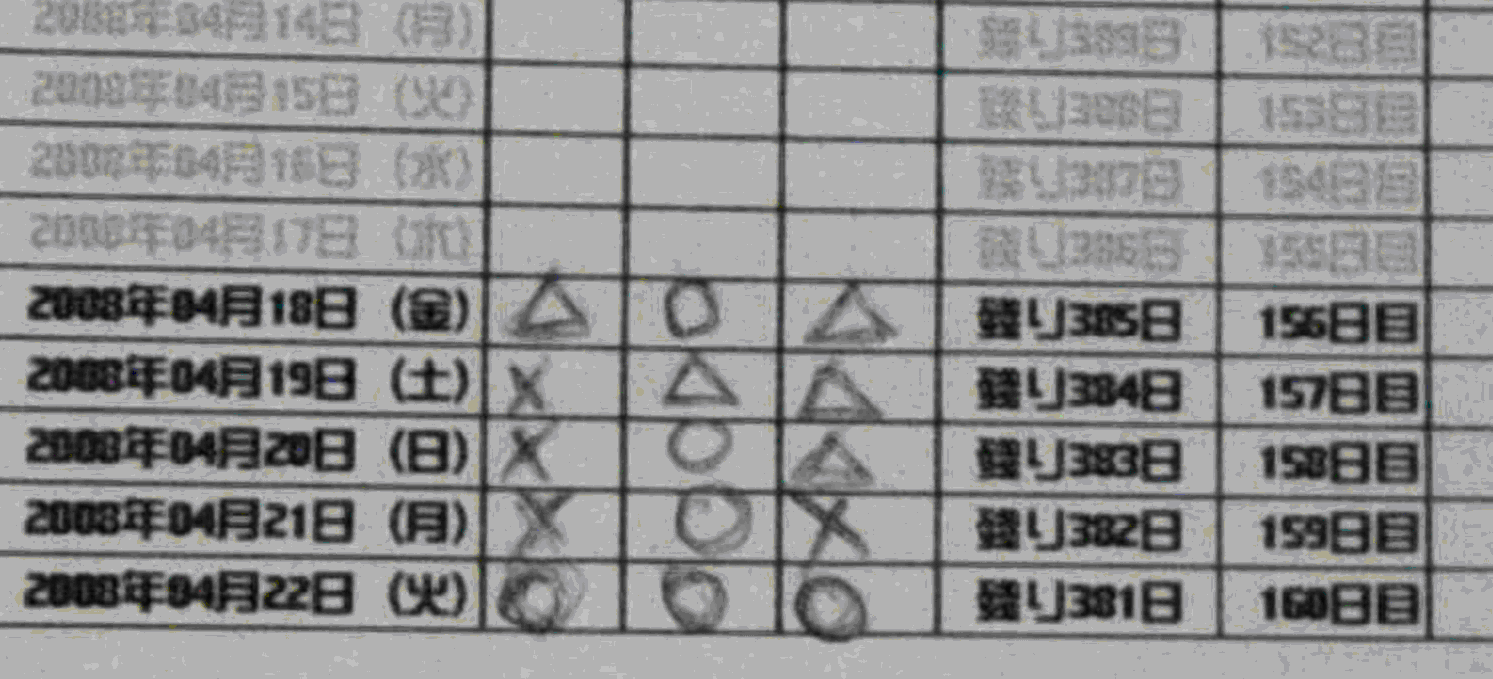 2008年04月14日 (月) 残り389日 152日目
2008年04月15日 (火) 残り388日 153日目
2008年04月16日 (水) 残り387日 154日目
2008年04月17日 (木) 残り386日 155日目
2008年04月18日 (金) △ ○ △ 残り385日 156日目
2008年04月19日 (土) × △ △ 残り384日 157日目
2008年04月20日 (日) × ○ △ 残り383日 158日目
2008年04月21日 (月) × ○ × 残り382日 159日目
2008年04月22日 (火) ○ ○ ○ 残り381日 160日目